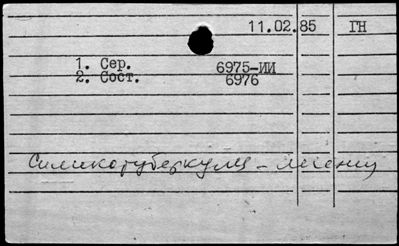 11.02.85 ГН
1. Сер. 6975-ИИ
2. Сост. 6976
Силикотуберкулез - лечение